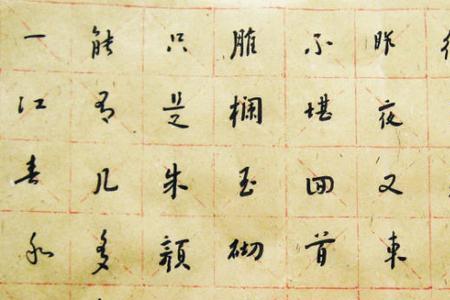 昨夜又東
不堪回首
雕欄玉砌
只是朱顏
能有几多
一江春水